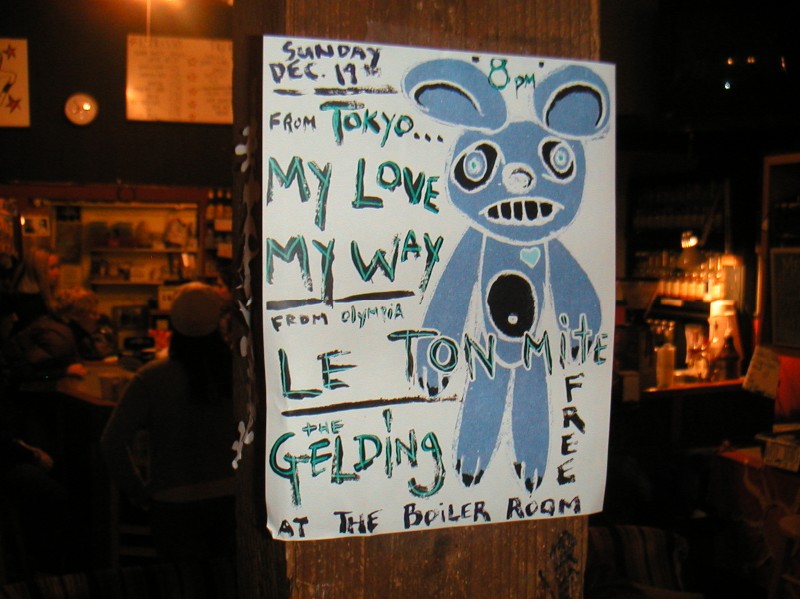 SUNDAY
DEC. 19th
8 PM
FROM TOKYO...
MY LOVE
MY WAY
FROM OlyMPIA
LE TON MitE
THE
GELDiNg
FREE
AT THE BOiLER ROOM